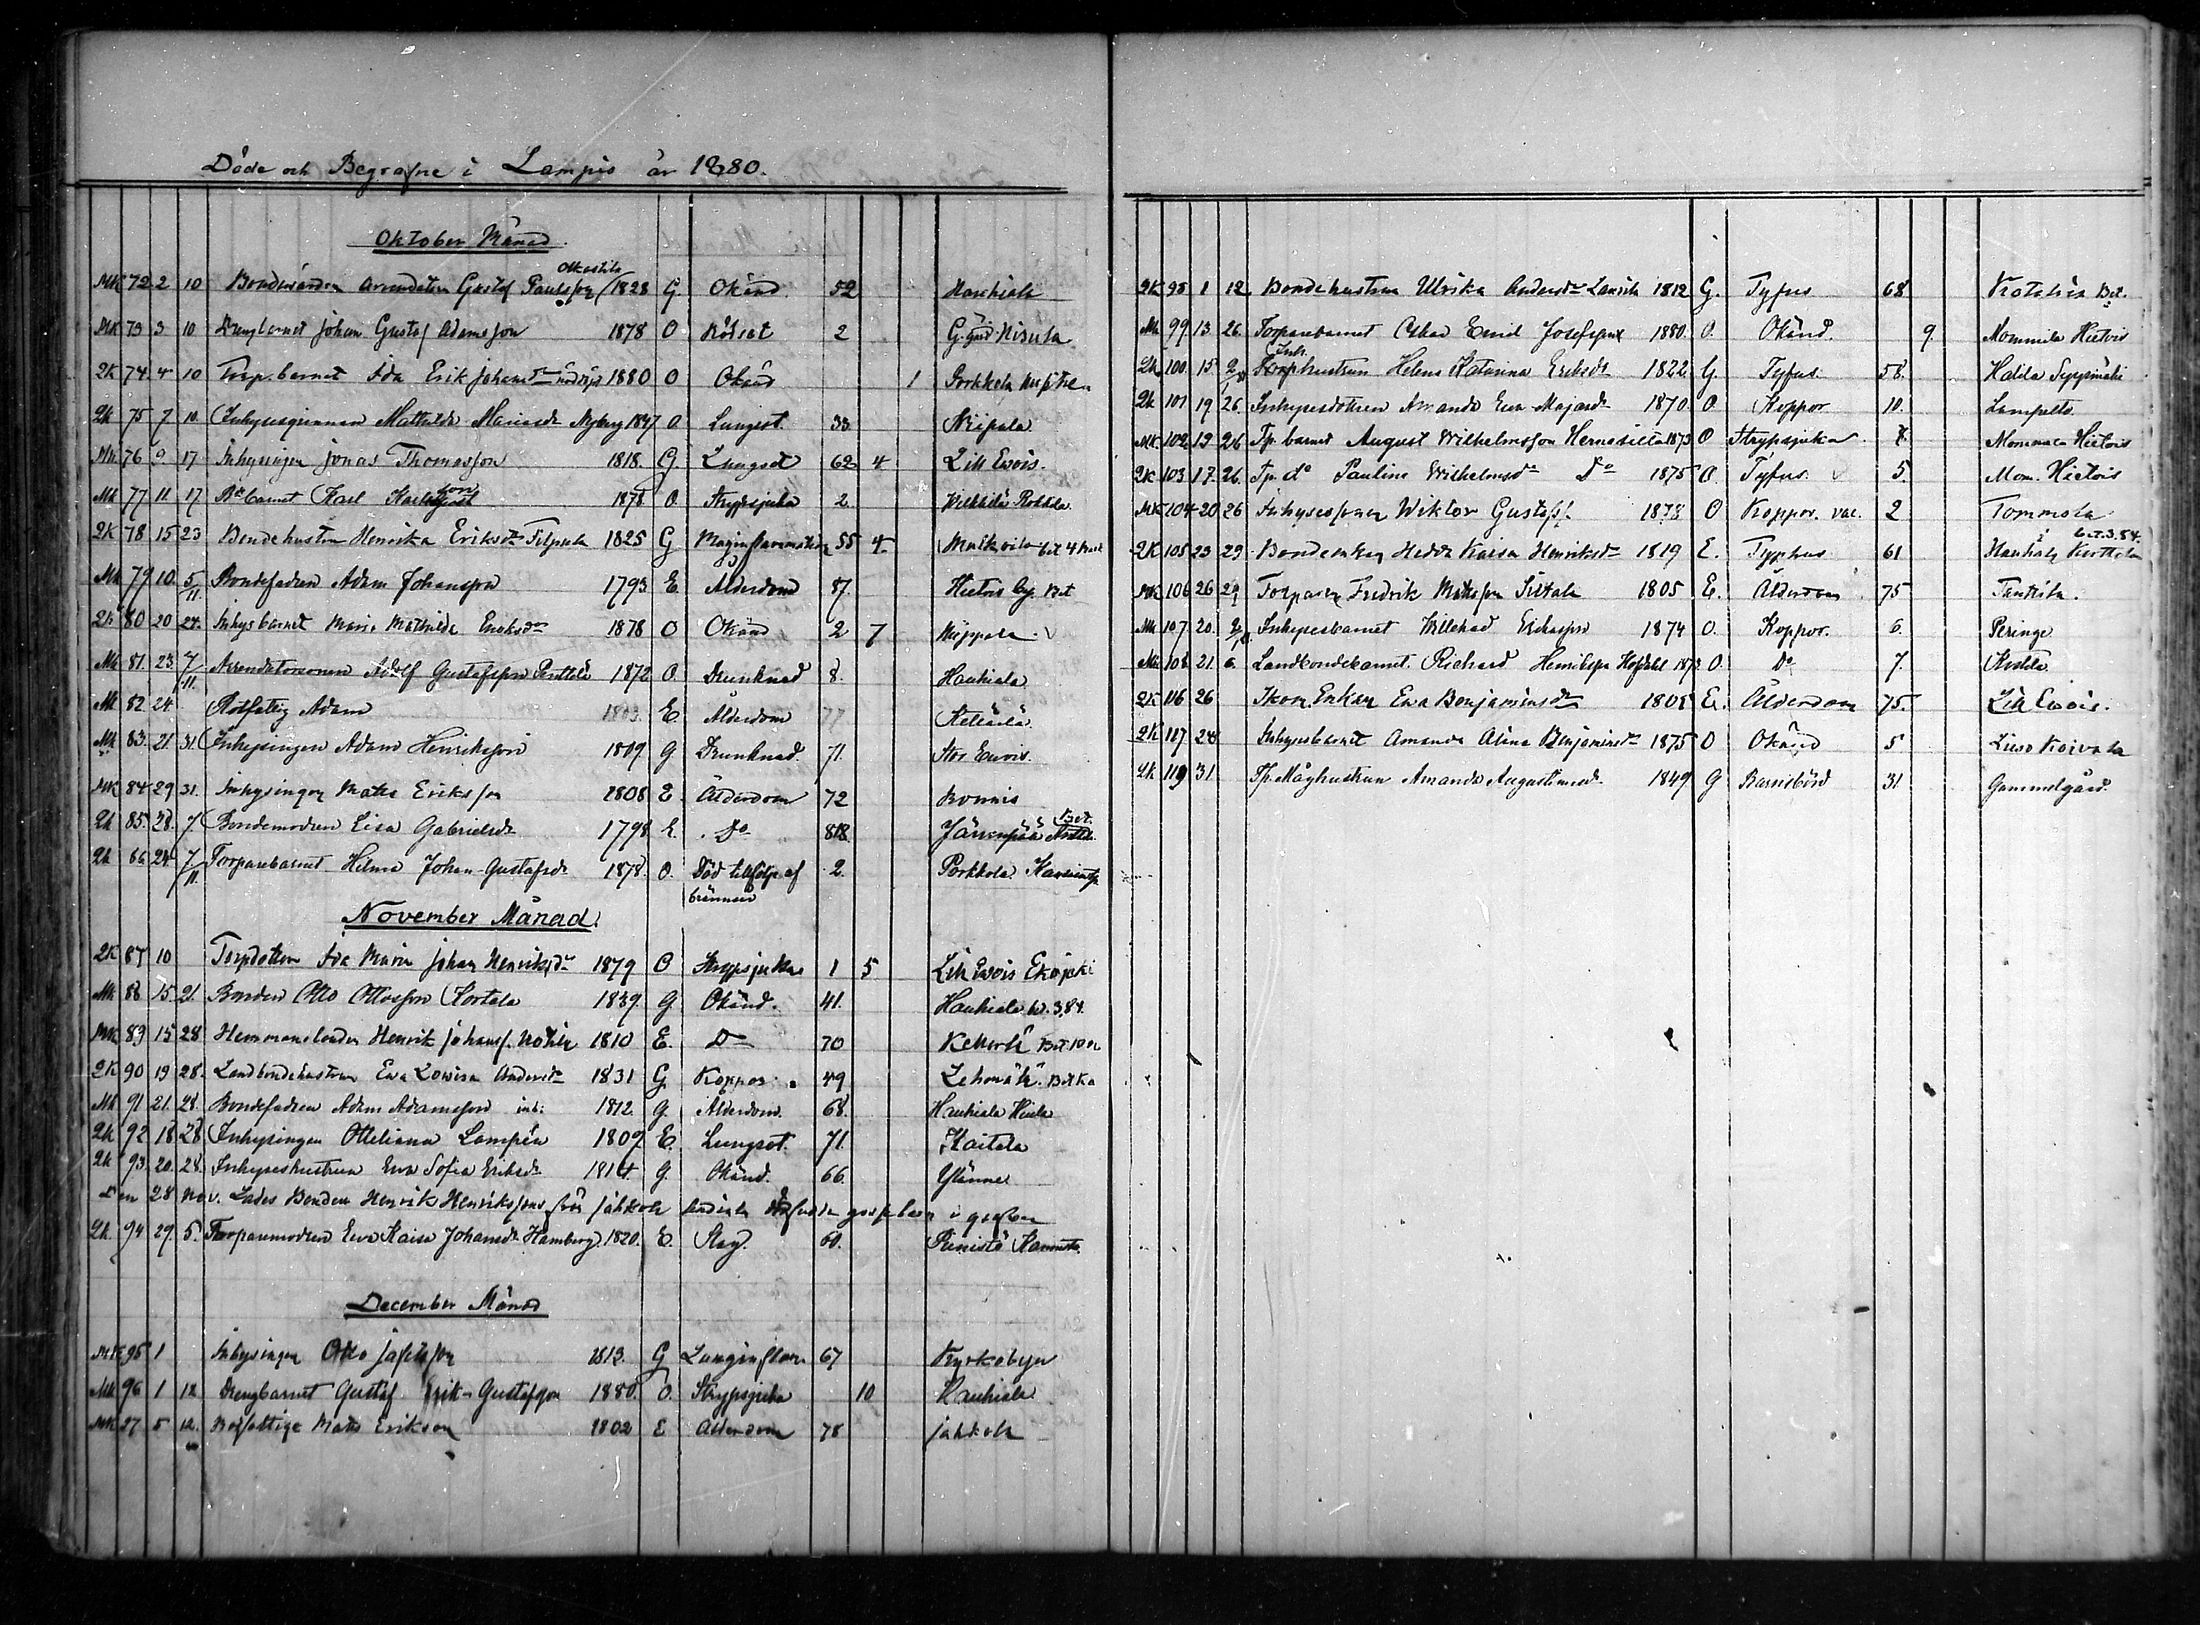 Döde och Begrafne i Lampis år 1880.
Oktober Månad.
Mk 72 2 10 Bondevärden arrendatorn Gustaf Paulsson 1828 G. Okänd. 52 Hauhiala
Mk 73 3 10 Drengbarnet Johan Gustaf Adamsson 1878 O Rödsot 2 G. gård Nisula
Qk 74 4 10 Torp. barnet Ida Erik Johansdr 1880 O Okänd 1 Porkkola
Qk 75 7 10 Inhysesqvinnan Mathilda Mariasdr Nyberg 1847 O. Lungsot. 33 Niipala
Mk 76 9 17 Inhysingen Jonas Thomasson 1818. G. Lungsot 62 4 Lill Ewois.
Mk 77 11 17 Bd barnet Karl Karlsson 1878 O Strypsjuka 2 Kilkkilä Rokkola
Qk 78 15 23 Bondehustrun Henrika Eriksdr Filpula 1825 G Maginflammation 55 4
Mk 79 10. 5/11 Bondefadren Adam Johansson 1793 E. Ålderdom 87. Hietois by. Bet
Qk 80 20 24. Inhysbarnet Maria Mathilda Enoksdr 1878 O Okänd 2 7
Mk 81. 23. 7/11. Arrendatorsonen Adolf Gustafsson Penttilä 1872 O. Drunknad 8. Hauhiala
Mk 82 24 Rotfattig Adam 1803. E. Ålderdom 77
Mk 83. 21. 31. Inhysingen Adam Henriksson 1809 G Drunknad. 71. Stor Ewois.
Mk 84 29 31. Inhysingen Mats Eriksson 1808 E Ålderdom 72
Qk 85. 28. 7 Bondemodren Lisa Gabrielsdr 1798 E. Do 81 Järvenpää Bet.
Qk 86 24 7/11. Torparebarnet Hilma Johan Gustafsdr 1878. O. Död tillfölje af 2. Porkkola
brännsår
November Månad.
Qk 87 10 Torpdottern Ida Maria Johan Henriksdr 1879 O Strypsjuka 1 5 Lill Ewois Ekojoki
Mk 88 15. 21. Bonden Otto Ottosson Sortala 1839 G Okänd. 41. Hauhiala
Mk 89 15 28 Henrik Johanss. 1810 E. Do 70
Qk 90 19 28. Landbondehustrun Ewa Lowisa Andersdr 1831 G. Koppor. 49
Mk 91 21. 28. Bondefadren Adam Adamsson 1812. G. Ålderdom. 68. Hauhiala
Qk 92 18 28 Inhysingen Otteliana Lampén 1809 E. Lungsot. 71. Kaitala
Qk 93. 20. 28. Inhyseshustrun Ewa Sofia Eriksdr 1814 G. Okänd. 66. Ylänne
Den 28 Nov. Lades Bonden Henrik Henrikssons från Jahkola i grafven
Qk 94 29. 5. Torparemodren Ewa Kaisa Johansdr Hamberg 1820. E. Slag. 60.
December Månad
Mk 95 1 Inhysingen Otto Josefsson 1813. G Lunginflam. 67 Kyrkobyn
Mk 96 1 12 Drengbarnet Gustaf Erik Gustafsson 1880. O. Strypsjuka 10 Hauhiala
Mk 97 5 12. Rotfattige Mats Eriksson 1802 E Ålderdom 78 Jahkola
Qk 98 1 12 Bondehustrun Ulrika Andersdr 1812 G. Tyfus 68 Kotolois Bet.
Mk 99 13. 26. Torparebarnet Oskar Emil Josefsson 1880. O. Okänd. 9. Mommila Hietois
Qk 100. 15 Inh. hustrun Helena Katarina Eriksdr 1822 G Tyfus. 58. Seppämäki
Qk 101 19 26. Inhysesdottren Amanda Ewa Majasdr 1870. O. Koppor 10. Lampelto
Mk 102 19 26 Tp. barnet August Wilhelmsson Hernesilla 1873 O Strypsjuka 7. Hietois
Qk 103 17. 26. Tp. do Paulina Wilhelmsdr Do 1875 O. Tyfus. 5. Mom. Hietois
Mk 104 20 26 Inhysesonen Wiktor Gustafss. 1878 O Koppor. vac. 2 Tommola
Qk 105 23 29. Bondeenkan Hedda Kaisa Henriksdr 1819 E. Typhus 61 Bet. 3.84.
Mk 106 26 29 Torparen Fredrik Matsson Siltala 1805 E. Ålderdom 75 Tantila.
Mk 107. 20. Inhysesbarnet Willehad Eliasson 1874 O. Koppor. 6. Peringe
Mk 108. 21. 6. Landbondebarnet. Richard Henriksson 1873 O. Do 7.
Qk 116 26 Enkan Ewa Benjaminsdr 1805 E. Ålderdom 75. Lill Ewois.
Qk 117 24 Inhysesbarnet Amanda Alina Benjaminsdr 1875 O Okänd 5 Lieso Koivula
Qk 119 31. Tp. Måghustrun Amanda Augustinusdr. 1849 G Barnsbörd 31 Gammelgård.